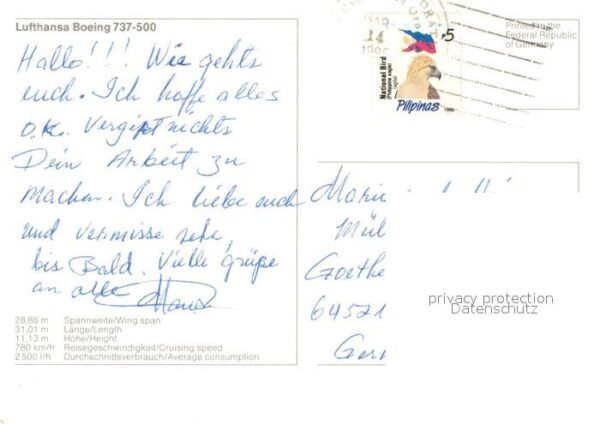 Lufthansa Boeing 737-500
Hallo!!! Wie gehts
euch. Ich hoffe alles
O.K. Vergißt nichts
Dein Arbeit zu
machen. Ich liebe euch
und vermisse sehr,
bis Bald. Vielle grüße
an alle
28,88 m Spannweite/Wing span
31,01 m Länge/Length
11,13 m Höhe/Height
780 km/h Reisegeschwindigkeit/Cruising speed
2500 l/h Durchschnittsverbrauch/Average consumption
14
5
National Bird
(Philippine eagle)
Pilipinas
1996
Printed in the
Federal Republic
of Germany
Mül
Goethe
64521
Ger
privacy protection
Datenschutz